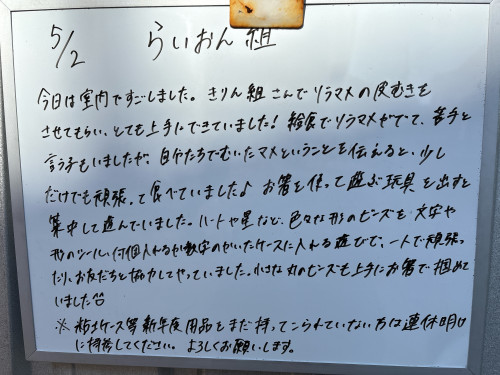 5/2 らいおん組
今日は室内ですごしました。きりん組さんでソラマメの皮むきを
させてもらい、とても上手にできていました！給食でソラマメがでて、苦手と
言う子もいましたが、自分たちでむいたマメということを伝えると、少し
だけでも頑張って食べていました♪ お箸を使って遊ぶ玩具を出すと
集中して遊んでいました。ハートや星など、色々な形のビーズを文字や
形のシール、何個入れるか数字のかいたケースに入れる遊びで、一人で頑張っ
たり、お友だちと協力してやっていました。小さな丸のビーズも上手にお箸で掴めて
いました☺
※粘土ケース等新年度用品をまだ持ってこられていない方は連休明け
に持参してください。よろしくお願いします。